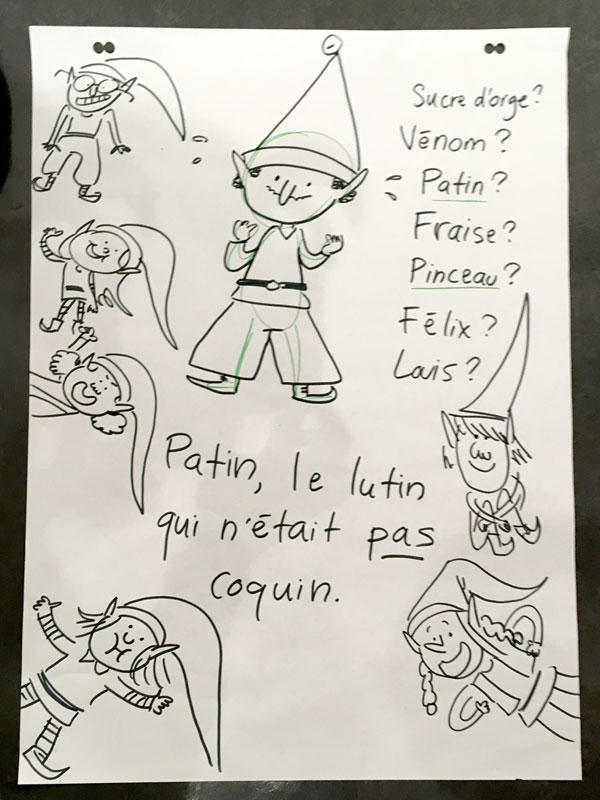 Sucre d'orge?
Vénom?
Patin?
Fraise?
Pinceau?
Félix?
Lais?
Patin, le lutin
qui n'était pas
coquin.